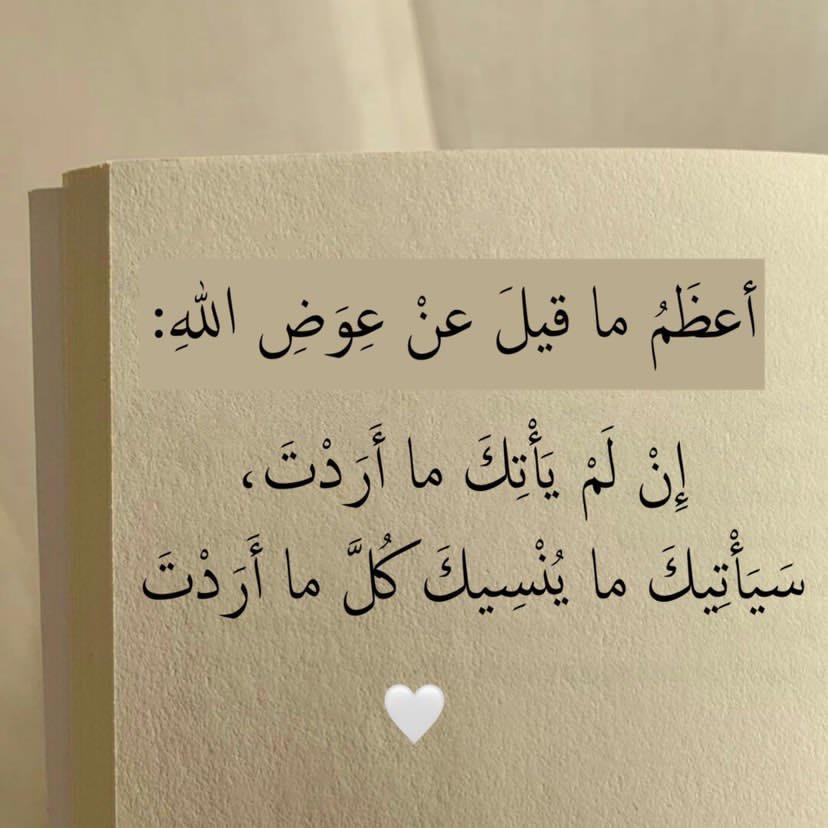 أعظَمُ ما قيلَ عنْ عِوَضِ اللهِ:
إِنْ لَمْ يَأْتِكَ ما أَرَدْتَ،
سَيَأْتِيكَ ما يُنْسِيكَ كُلَّ ما أَرَدْتَ
🤍